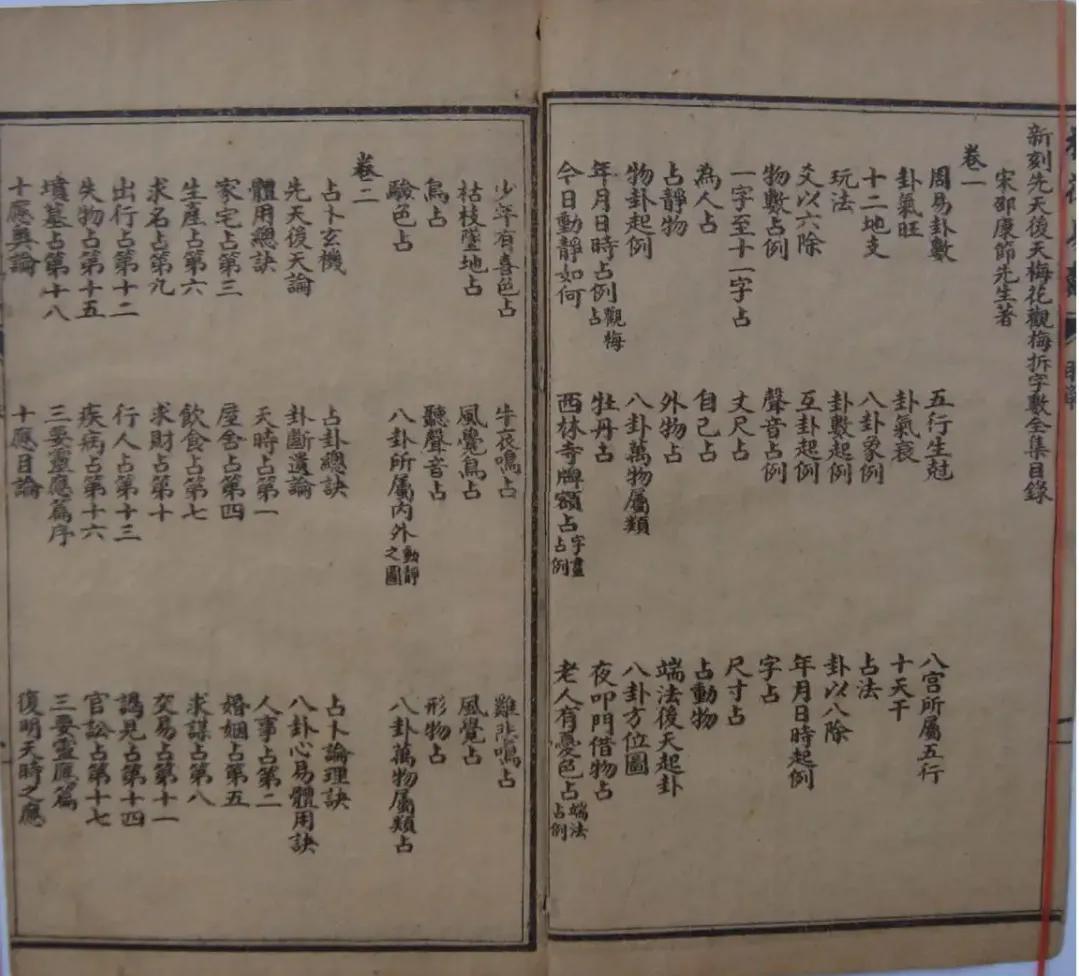 新刻先天後天梅花觀梅拆字數全集目錄
宋邵康節先生著
卷一
周易卦數 五行生尅 八宮所屬五行
卦氣旺 卦氣衰 十天干
十二地支 八卦象例 占法
玩法 卦數起例 卦以八除
爻以六除 互卦起例 年月日時起例
物數占例 聲音占例 字占
一字至十一字占 丈尺占 尺寸占
為人占 自己占 占動物
占靜物 外物占 端法後天起卦
物卦起例 八卦萬物屬類 八卦方位圖
年月日時占例觀梅占 牡丹占 夜叩門借物占
今日動靜如何 西林寺牌額占字畫占例 老人有憂色占端法占例
少年有喜色占 牛夜鳴占 雞悲鳴占
枯枝墜地占 風覺鳥占 風覺占
鳥占 聽聲音占 形物占
驗色占 八卦所屬內外動靜之圖 八卦萬物屬類占
卷二
占卜玄機 占卦總訣 占卜論理訣
先天後天論 卦斷遺論 八卦心易體用訣
體用總訣 天時占第一 人事占第二
家宅占第三 屋舍占第四 婚姻占第五
生產占第六 飲食占第七 求謀占第八
求名占第九 求財占第十 交易占第十一
出行占第十二 行人占第十三 謁見占第十四
失物占第十五 疾病占第十六 官訟占第十七
墳墓占第十八 三要靈應篇序 三要靈應篇
十應奧論 十應目論 復明天時之應